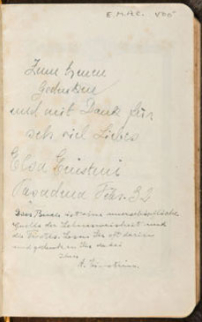 Zum treuen
Gedenken
und mit Dank für
sehr viel Liebes
Elsa Einstein
Pasadena 32
Dies Buch ist eine unerschöpfliche
Quelle der Lebensweisheit und
des Trostes. Lesen Sie oft darin
und gedenken Sie dabei
Ihres
A. Einstein.